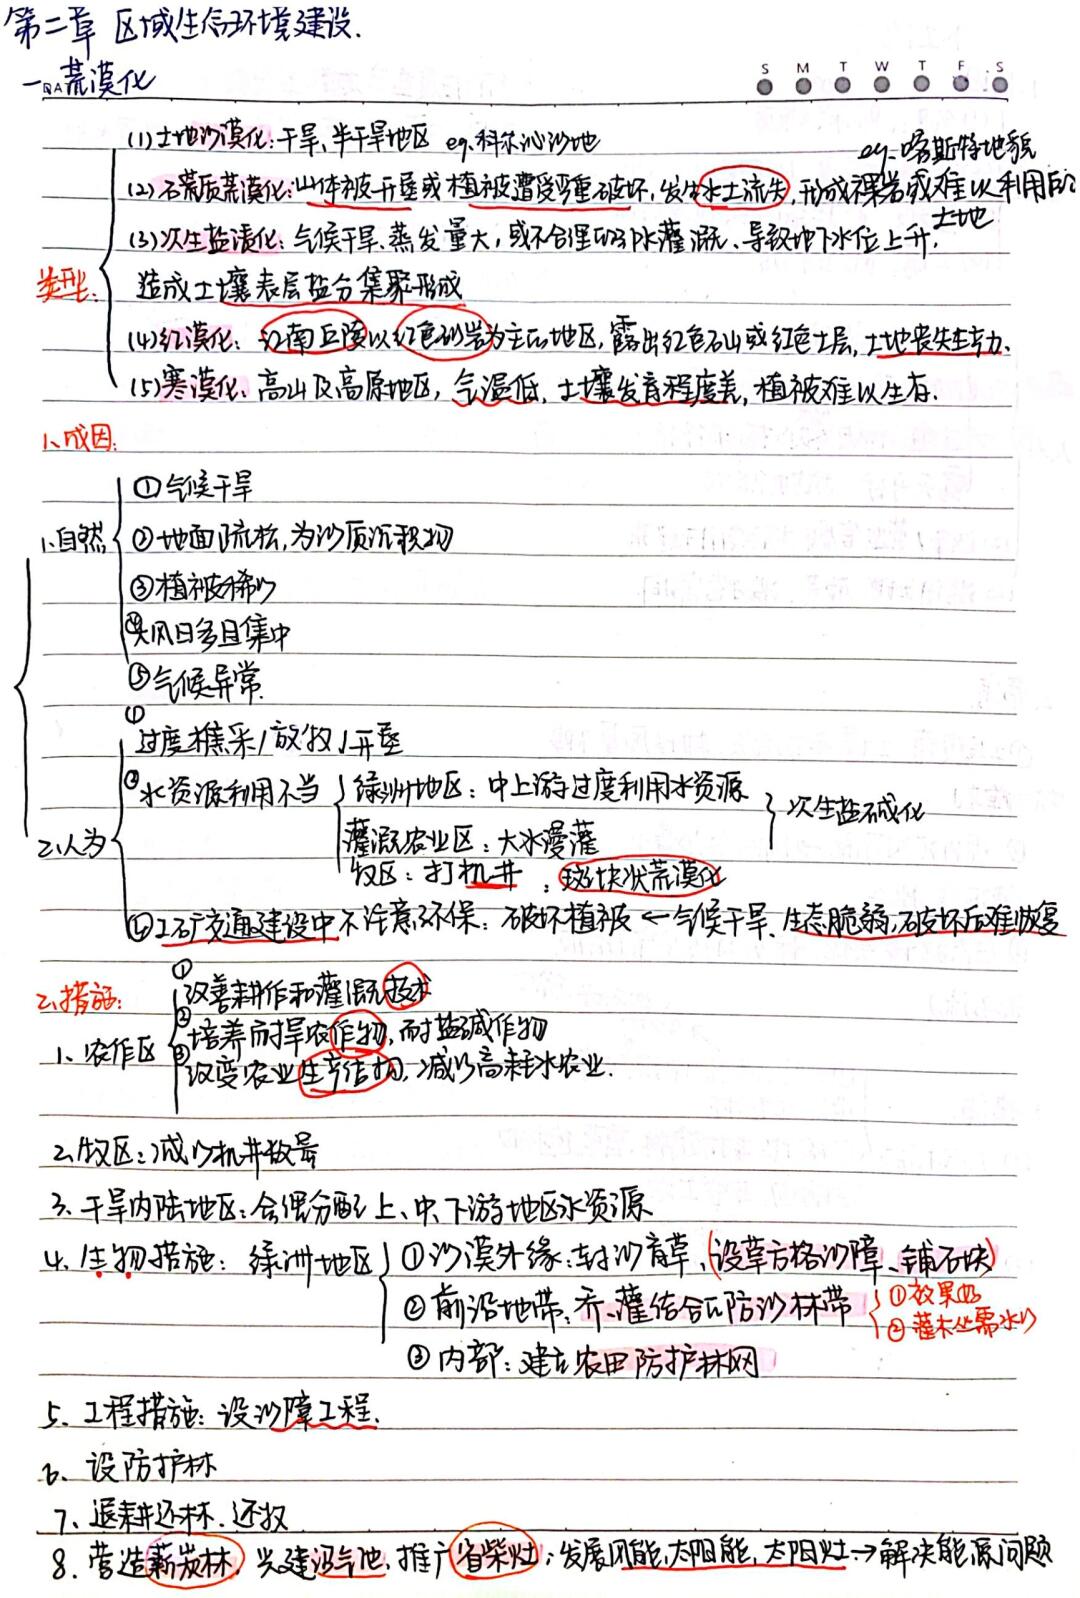 第二章 区域生态环境建设.
一、荒漠化
S M T W T F S
类型:
(1)土地沙漠化:干旱、半干旱地区 eg.科尔沁沙地
eg.喀斯特地貌
(2)石荒质荒漠化:山体被开垦或植被遭受严重破坏,发生水土流失,形成裸岩或难以利用的
土地
(3)次生盐渍化:气候干旱、蒸发量大,或不合理的引水灌溉、导致地下水位上升,
造成土壤表层盐分集聚形成
(4)红漠化、江南丘陵以红色砂岩为主的地区,露出红色石山或红色土层,土地丧失生产力.
(5)寒漠化、高山及高原地区,气温低,土壤发育程度差,植被难以生存.
1、成因:
1.自然
①气候干旱
②地面疏松,为沙质沉积物
③植被稀少
④大风日多且集中
⑤气候异常.
2.人为
①过度樵采/放牧/开垦
②水资源利用不当
绿洲地区:中上游过度利用水资源
灌溉农业区:大水漫灌
次生盐碱化
牧区:打机井:斑块状荒漠化
③工矿交通建设中不注意环保:破坏植被←气候干旱、生态脆弱,破坏后难恢复
2、措施:
1、农作区
①改善耕作和灌溉技术
②培养耐旱农作物,耐盐碱作物
③改变农业生产结构,减少高耗水农业.
2.牧区:减少机井数量
3.干旱内陆地区:合理分配上、中、下游地区水资源
4.生物措施:绿洲地区
①沙漠外缘:封沙育草、(设草方格沙障、铺石块)
②前沿地带:乔、灌结合的防沙林带
①效果好
②灌木丛需水少
③内部:建立农田防护林网
5.工程措施:设沙障工程.
6、设防护林
7、退耕还林.还牧
8.营造薪炭林,兴建沼气池,推广省柴灶;发展风能,太阳能,太阳灶→解决能源问题